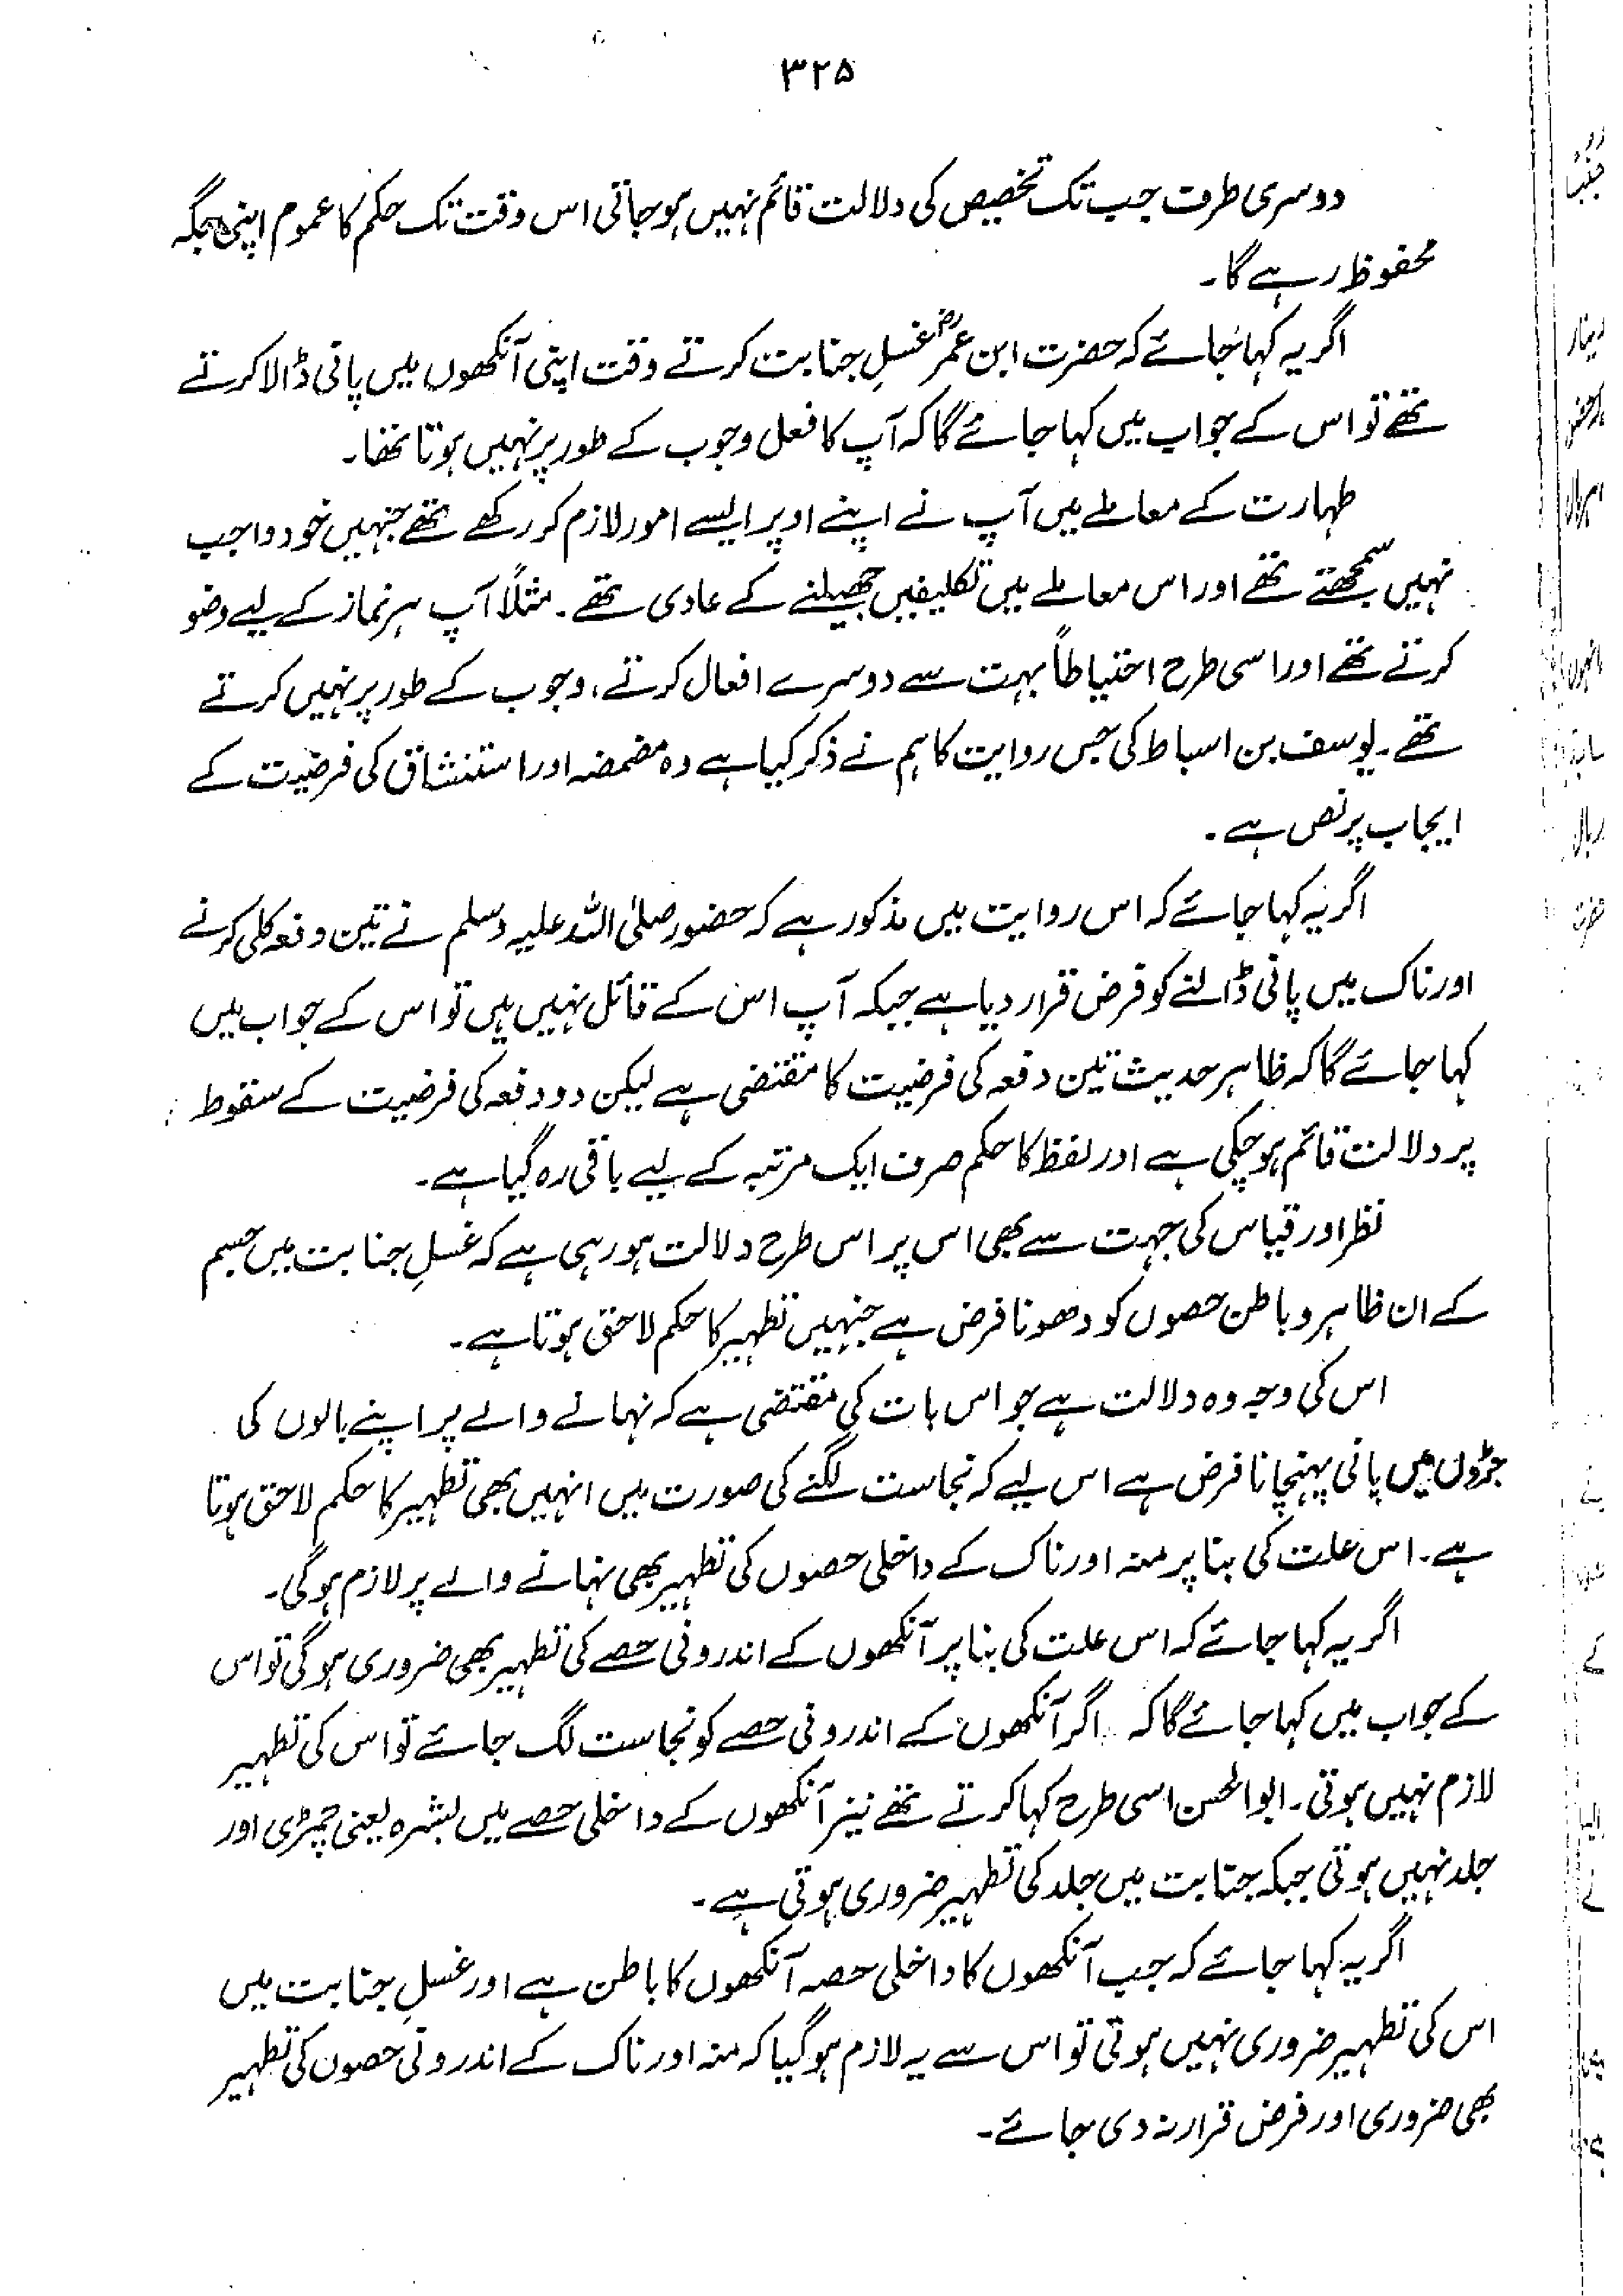 ۳۲۵
دوسری طرف جب تک تخصیص کی دلالت قائم نہیں ہو جاتی اس وقت تک حکم کا عموم اپنی جگہ
محفوظ رہے گا۔
اگر یہ کہا جائے کہ حضرت ابن عمرؓ غسلِ جنابت کرتے وقت اپنی آنکھوں میں پانی ڈالا کرتے
تھے تو اس کے جواب میں کہا جائے گا کہ آپ کا فعل وجوب کے طور پر نہیں ہوتا تھا۔
طہارت کے معاملے میں آپ نے اپنے اوپر ایسے امور لازم کر رکھے تھے جنہیں خود واجب
نہیں سمجھتے تھے اور اس معاملے میں تکلیفیں جھیلنے کے عادی تھے۔ مثلاً آپ ہر نماز کے لیے وضو
کرتے تھے اور اسی طرح احتیاطاً بہت سے دوسرے افعال کرتے، وجوب کے طور پر نہیں کرتے
تھے۔ یوسف بن اسباط کی جس روایت کا ہم نے ذکر کیا ہے وہ مضمضہ اور استنشاق کی فرضیت کے
ایجاب پر نص ہے۔
اگر یہ کہا جائے کہ اس روایت میں مذکور ہے کہ حضور صلی اللہ علیہ وسلم نے تین دفعہ کلی کرنے
اور ناک میں پانی ڈالنے کو فرض قرار دیا ہے جبکہ آپ اس کے قائل نہیں ہیں تو اس کے جواب میں
کہا جائے گا کہ ظاہر حدیث تین دفعہ کی فرضیت کا مقتضی ہے لیکن دو دفعہ کی فرضیت کے سقوط
پر دلالت قائم ہو چکی ہے اور لفظ کا حکم صرف ایک مرتبہ کے لیے باقی رہ گیا ہے۔
نظر اور قیاس کی جہت سے بھی اس پر اس طرح دلالت ہو رہی ہے کہ غسلِ جنابت میں جسم
کے ان ظاہر و باطن حصوں کو دھونا فرض ہے جنہیں تطہیر کا حکم لاحق ہوتا ہے۔
اس کی وجہ وہ دلالت ہے جو اس بات کی مقتضی ہے کہ نہانے والے پر اپنے بالوں کی
جڑوں میں پانی پہنچانا فرض ہے اس لیے کہ نجاست لگنے کی صورت میں انہیں بھی تطہیر کا حکم لاحق ہوتا
ہے۔ اس علت کی بنا پر منہ اور ناک کے داخلی حصوں کی تطہیر بھی نہانے والے پر لازم ہو گی۔
اگر یہ کہا جائے کہ اس علت کی بنا پر آنکھوں کے اندرونی حصے کی تطہیر بھی ضروری ہو گی تو اس
کے جواب میں کہا جائے گا کہ اگر آنکھوں کے اندرونی حصے کو نجاست لگ جائے تو اس کی تطہیر
لازم نہیں ہوتی۔ ابوالحسن اسی طرح کہا کرتے تھے نیز آنکھوں کے داخلی حصے میں بشرہ یعنی چمڑی اور
جلد نہیں ہوتی جبکہ جنابت میں جلد کی تطہیر ضروری ہوتی ہے۔
اگر یہ کہا جائے کہ جب آنکھوں کا داخلی حصہ آنکھوں کا باطن ہے اور غسلِ جنابت میں
اس کی تطہیر ضروری نہیں ہوتی تو اس سے یہ لازم ہو گیا کہ منہ اور ناک کے اندرونی حصوں کی تطہیر
بھی ضروری اور فرض قرار نہ دی جائے۔